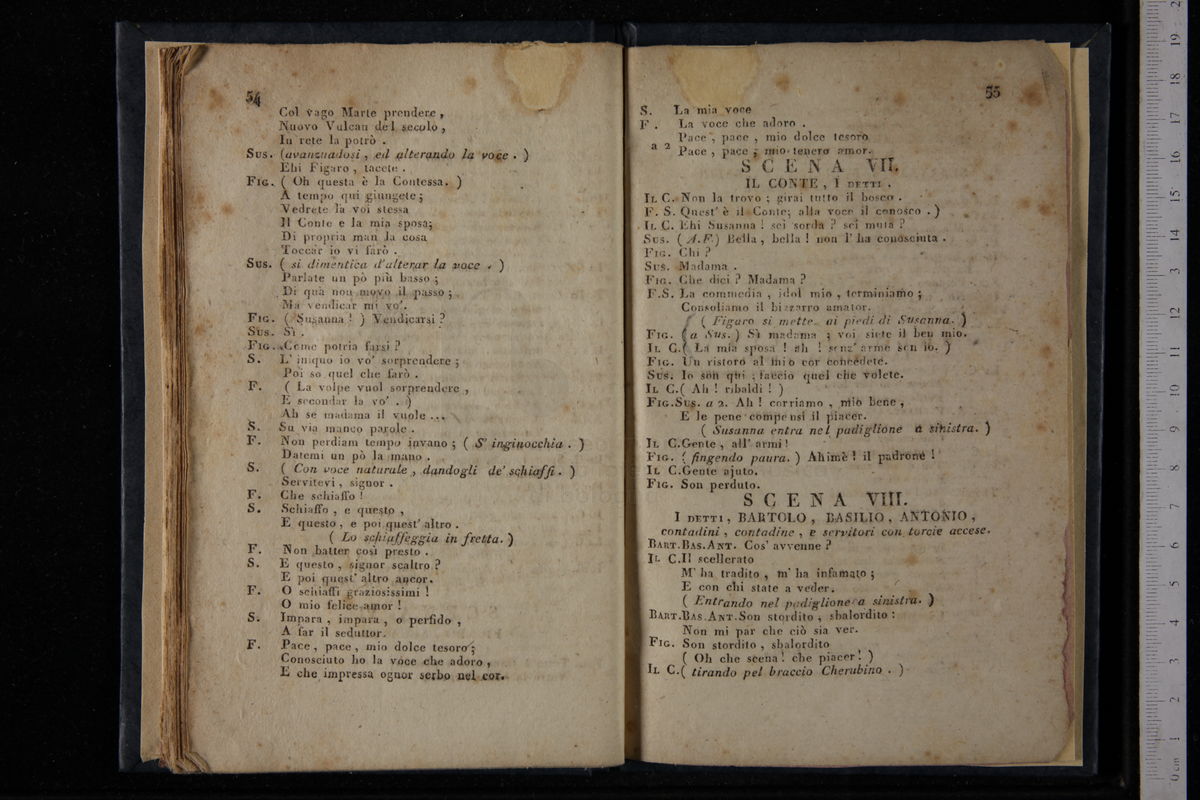 54
Col vago Marte prendere ,
Nuovo Vulcan del secolo ,
In rete la potrò .
Sus. (avanzandosi , ed alterando la voce . )
Ehi Figaro , tacete .
Fig. ( Oh questa è la Contessa. )
A tempo qui giungete ;
Vedrete là voi stessa
Il Conte e la mia sposa;
Di propria man la cosa
Toccar io vi farò .
Sus. ( si dimentica d'alterar la voce . )
Parlate un pò più basso ;
Di quà non movo il passo ;
Ma vendicar mi vo'.
Fig. ( Susanna ! ) Vendicarsi ?
Sus. Sì .
Fig. Come potria farsi ?
S. L' iniquo io vo' sorprendere ;
Poi so quel che farò .
F. ( La volpe vuol sorprendere ,
E secondar la vo' . )
Ah se madama il vuole ...
S. Su via manco parole .
F. Non perdiam tempo invano ; ( S' inginocchia . )
Datemi un pò la mano .
S. ( Con voce naturale , dandogli de' schiaffi . )
Servitevi , signor .
F. Che schiaffo !
S. Schiaffo , e questo ,
E questo , e poi quest' altro .
( Lo schiaffeggia in fretta. )
F. Non batter così presto .
S. E questo , signor scaltro ?
E poi quest' altro ancor.
F. O schiaffi graziosissimi !
O mio felice amor !
S. Impara , impara , o perfido ,
A far il seduttor.
F. Pace , pace , mio dolce tesoro ;
Conosciuto ho la voce che adoro ,
E che impressa ognor serbo nel cor.
55
S. La mia voce
F . La voce che adoro .
Pace , pace , mio dolce tesoro
a 2 Pace , pace ; mio tenero amor.
SCENA VII.
IL CONTE , I DETTI .
Il C. Non la trovo ; girai tutto il bosco .
F. S. Quest' è il Conte; alla voce il conosco . )
Il C. Ehi Susanna ! sei sorda ? sei muta ?
Sus. ( A.F. ) Bella , bella ! non l' ha conosciuta .
Fig. Chi ?
Sus. Madama .
Fig. Che dici ? Madama ?
F.S. La commedia , idol mio , terminiamo ;
Consoliamo il bizzarro amator.
( Figaro si mette ai piedi di Susanna. )
Fig. (a Sus. ) Sì madama ; voi siete il ben mio.
Il C.( La mia sposa ! ah ! senz' arme son io. )
Fig. Un ristoro al mio cor concedete.
Sus. Io son qui ; faccio quel che volete.
Il C.( Ah ! ribaldi ! )
Fig.Sus. a 2. Ah ! corriamo , mio bene ,
E le pene compensi il piacer.
( Susanna entra nel padiglione a sinistra. )
Il C.Gente , all' armi !
Fig. ( fingendo paura. ) Ahimè ! il padrone !
Il C.Gente ajuto.
Fig. Son perduto.
SCENA VIII.
I DETTI , BARTOLO , BASILIO , ANTONIO ,
contadini , contadine , e servitori con torcie accese.
Bart.Bas.Ant. Cos' avvenne ?
Il C.Il scellerato
M' ha tradito , m' ha infamato ;
E con chi state a veder.
( Entrando nel padiglione a sinistra. )
Bart.Bas.Ant.Son stordito , sbalordito :
Non mi par che ciò sia ver.
Fig. Son stordito , sbalordito
( Oh che scena ! che piacer ! )
Il C.( tirando pel braccio Cherubino . )
0 cm 1 2 3 4 5 6 7 8 9 10 11 12 13 14 15 16 17 18 19 2